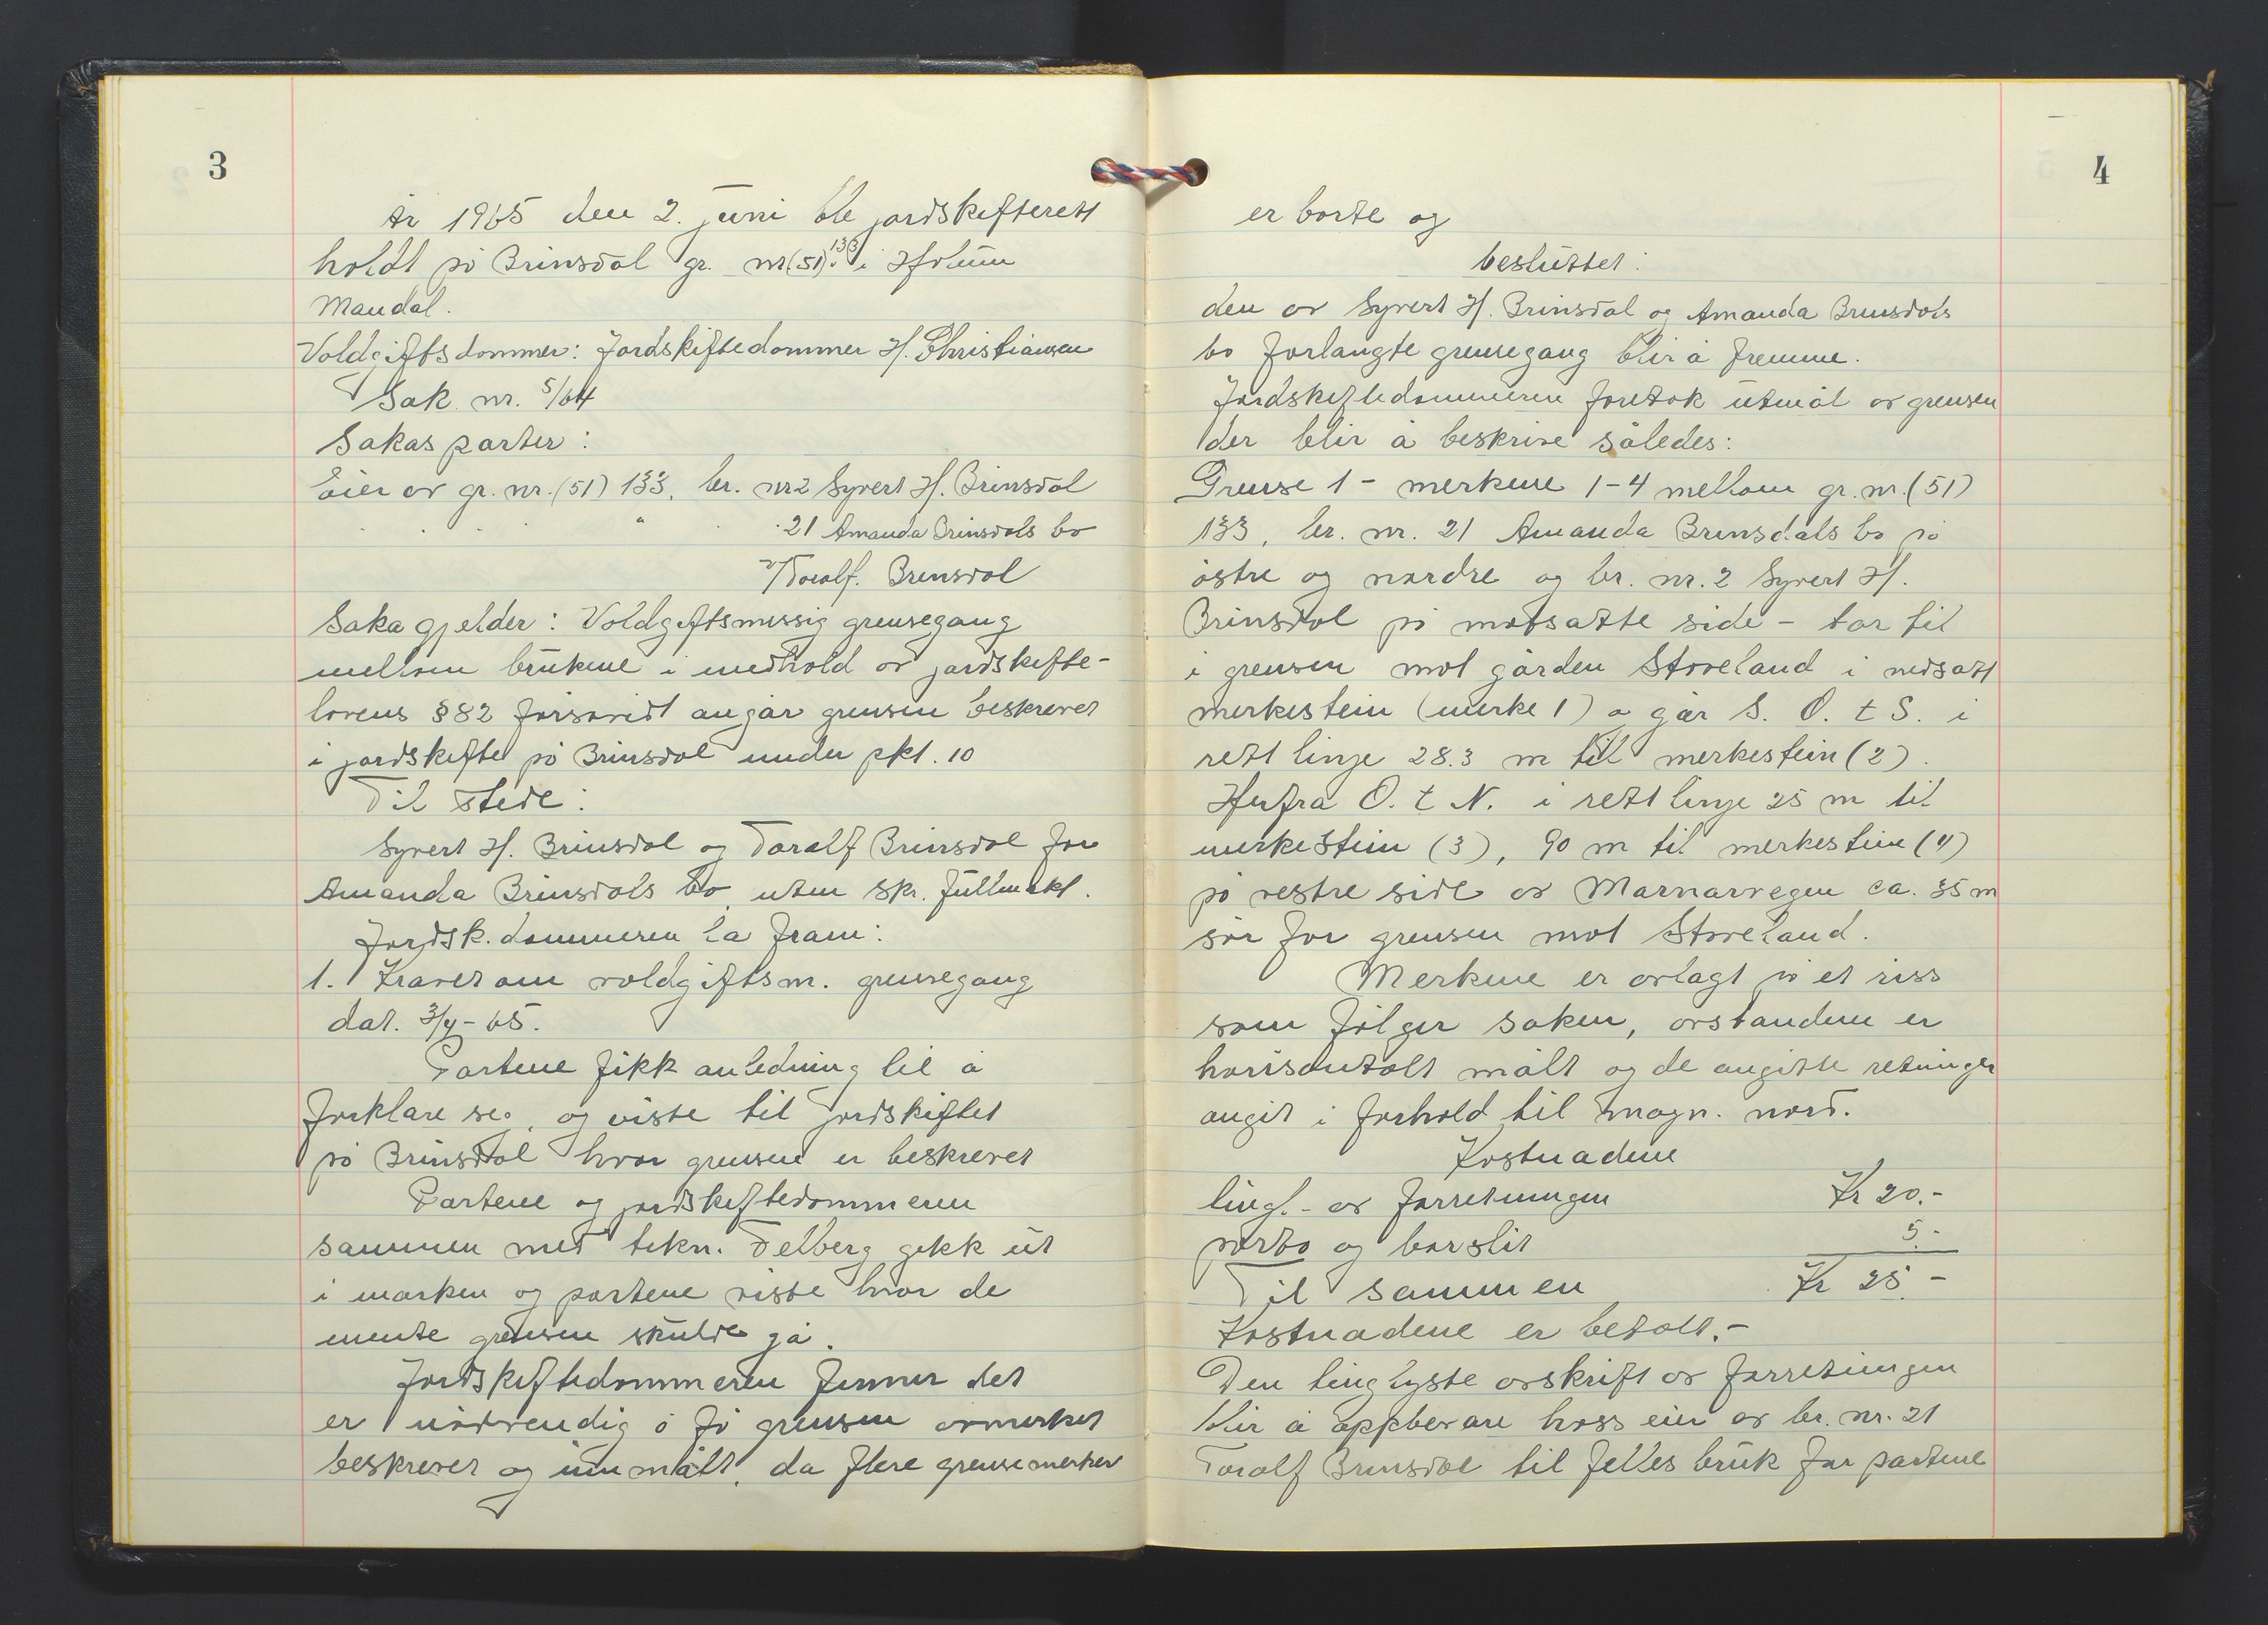 3
År 1965 den 2. juni ble jordskifterett
holdt på Brinsdal gr. nr (51) 133 i Holum
Mandal.
Voldgiftsdommer: Jordskiftedommer H. Christiansen
Sak nr. 5/64
Sakas parter:
Eier av gr. nr. (51) 133, br. nr 2 Syvert H. Brinsdal
" 21 Amanda Brinsdals bo
v/Toralf. Brinsdal
Saka gjelder: Voldgiftsmessig grensegang
mellom brukene i medhold av jordskifte-
lovens § 82 forsavidt angår grensen beskrevet
i jordskifte på Brinsdal under pkt. 10
Til stede:
Syvert H. Brinsdal og Toralf Brinsdal for
Amanda Brinsdals bo, uten skr. fullmakt.
Jordsk.dommeren la fram:
1. Kravet om voldgiftsm. grensegang
dat. 3/4-65.
Partene fikk anledning til å
forklare seg, og viste til jordskiftet
på Brinsdal hvor grensene er beskrevet
Partene og jordskiftedommeren
sammen med tekn. Felberg gikk ut
i marken og partene viste hvor de
mente grensen skulde gå.
Jordskiftedommeren finner det
er nødvendig å få grensen avmerket
beskrevet og innmålt, da flere grensemerker
4
er borte og
besluttet:
den av Syvert H. Brinsdal og Amanda Brinsdals
bo forlangte grensegang blir å fremme.
Jordskiftedommeren foretok utmål av grensen
der blir å beskrive således:
Grense 1 - merkene 1-4 mellom gr. nr. (51)
133, br. nr. 21 Amanda Brinsdals bo på
østre og nordre og br. nr. 2 Syvert H.
Brinsdal på motsatte side - tar til
i grensen mot gården Stoveland i nedsatt
merkestein (merke 1) og går S. O. t S. i
rett linje 28.3 m til merkestein (2).
Herfra O. t N. i rett linje 25 m til
merkestein (3), 90 m til merkestein (4)
på vestre side av Marnarvegen ca. 35 m
sør for grensen mot Stoveland.
Merkene er avlagt på et riss
som følger saken, avstandene er
horisontalt målt og de angitte retninger
angit i forhold til magn. nord.
Kostnadene
tingl. - av forretningen Kr 20.-
porto og børslit 5.-
Til sammen Kr 25.-
Kostnadene er betalt.-
Den tinglyste avskrift av forretningen
blir å oppbevare hoss eier av br. nr. 21
Toralf Brinsdal til felles bruk for partene